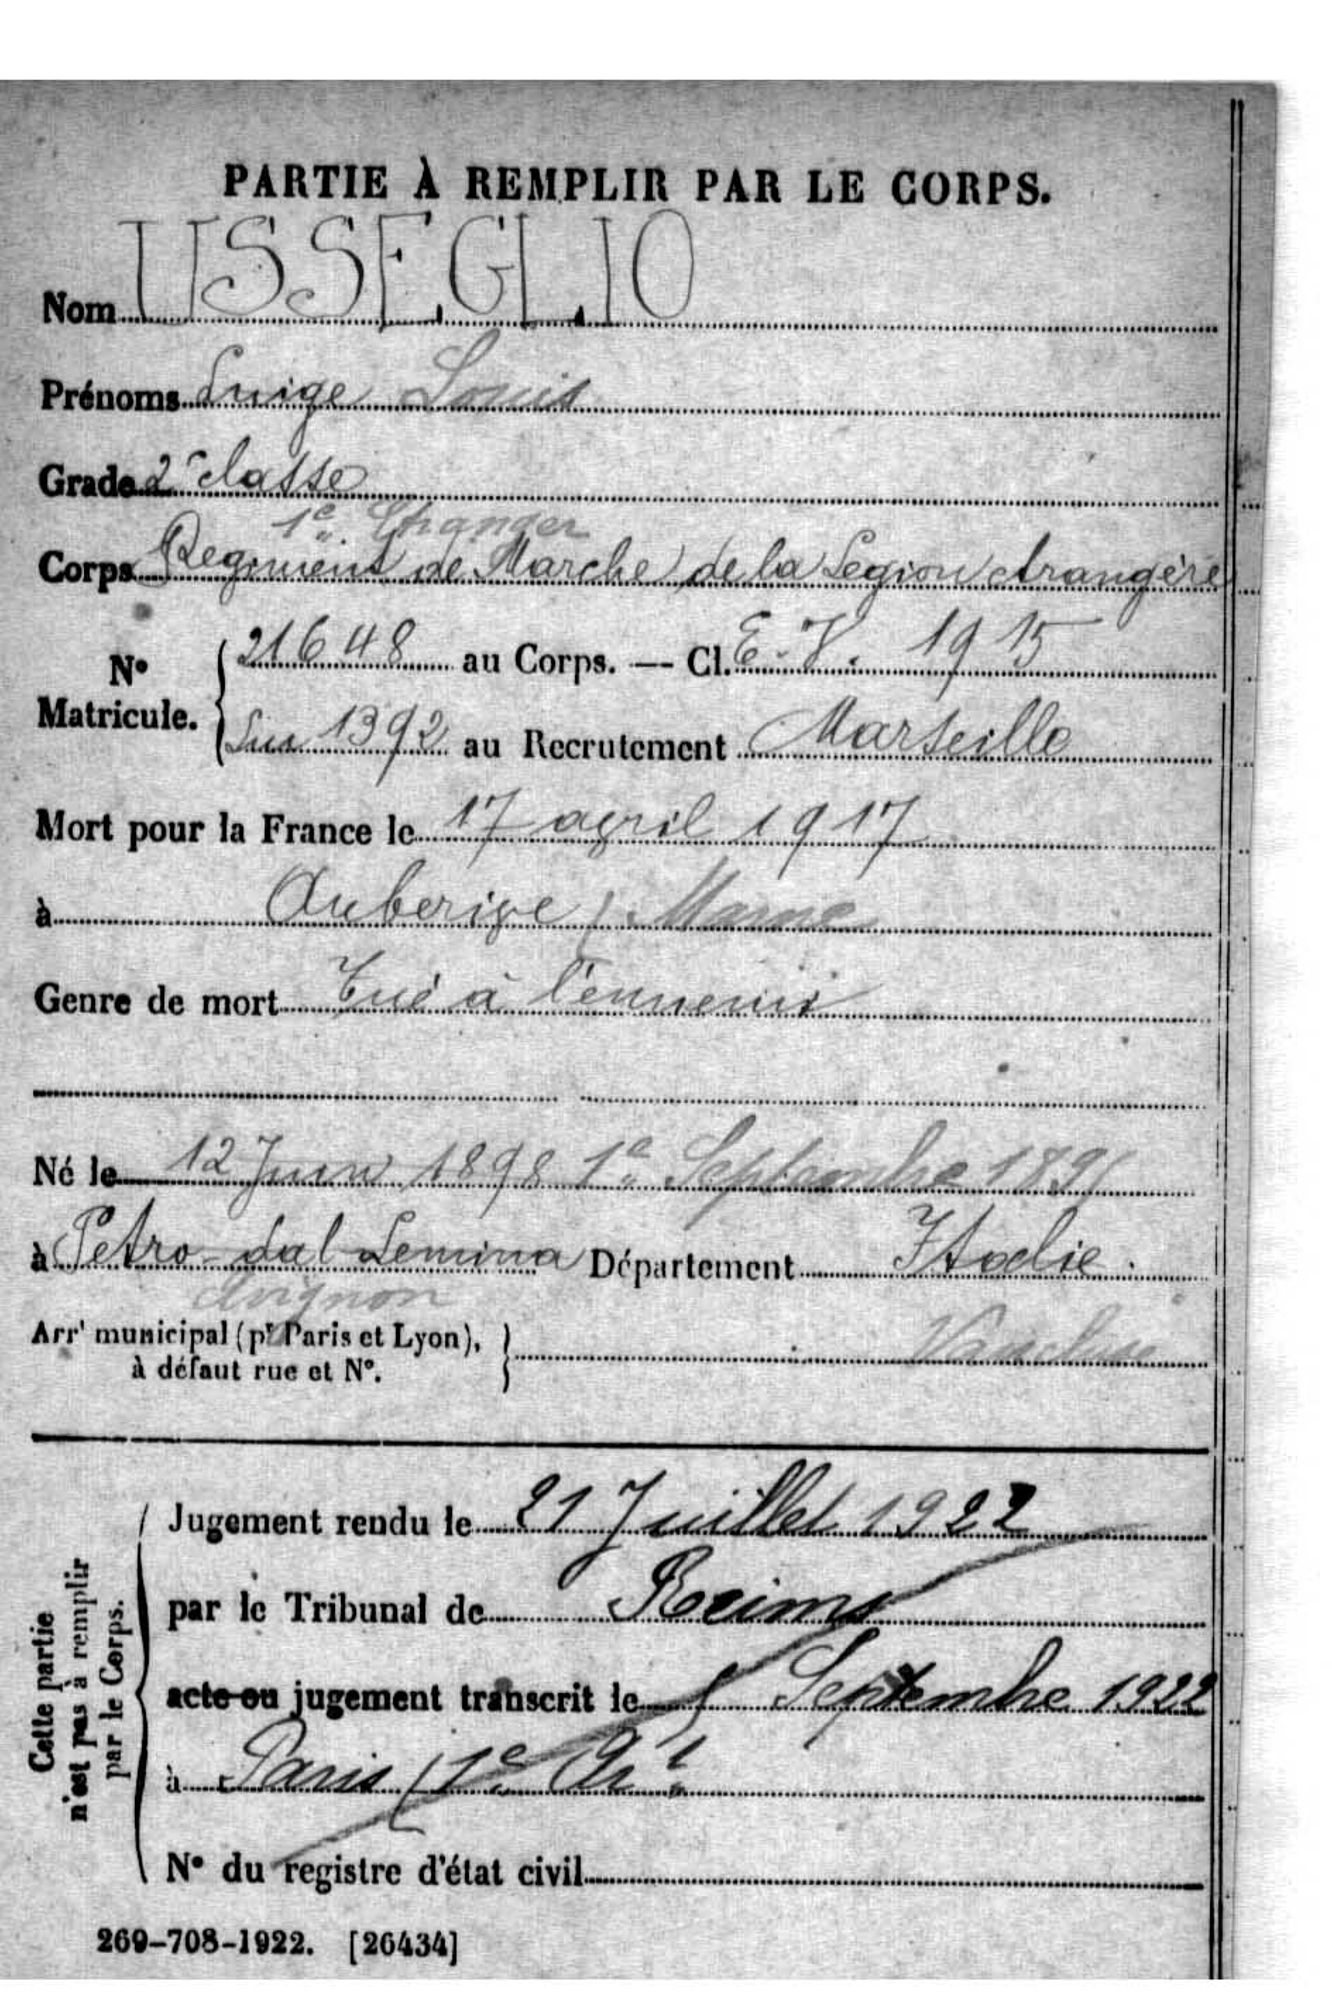 PARTIE À REMPLIR PAR LE CORPS.
Nom USSEGLIO
Prénoms Luige Louis
Grade 2e classe
1er Etranger
Corps Regiment de Marche de la Legion etrangère
No Matricule. 21648 au Corps. — Cl. E. V. 1915
1392 au Recrutement Marseille
Mort pour la France le 17 avril 1917
à Auberive Marne
Genre de mort Tué à l'ennemi
Né le 12 Juin 1898 1er Septembre
à Petro-dal Lemina Département Italie.
Avignon
Arrt municipal (pr Paris et Lyon), à défaut rue et No. Vaucluse
Cette partie n'est pas à remplir par le Corps.
Jugement rendu le 21 Juillet 1922
par le Tribunal de Reims
acte ou jugement transcrit le 5 Septembre 1922
à Paris (1er Art
No du registre d'état civil
269-708-1922. [26434]